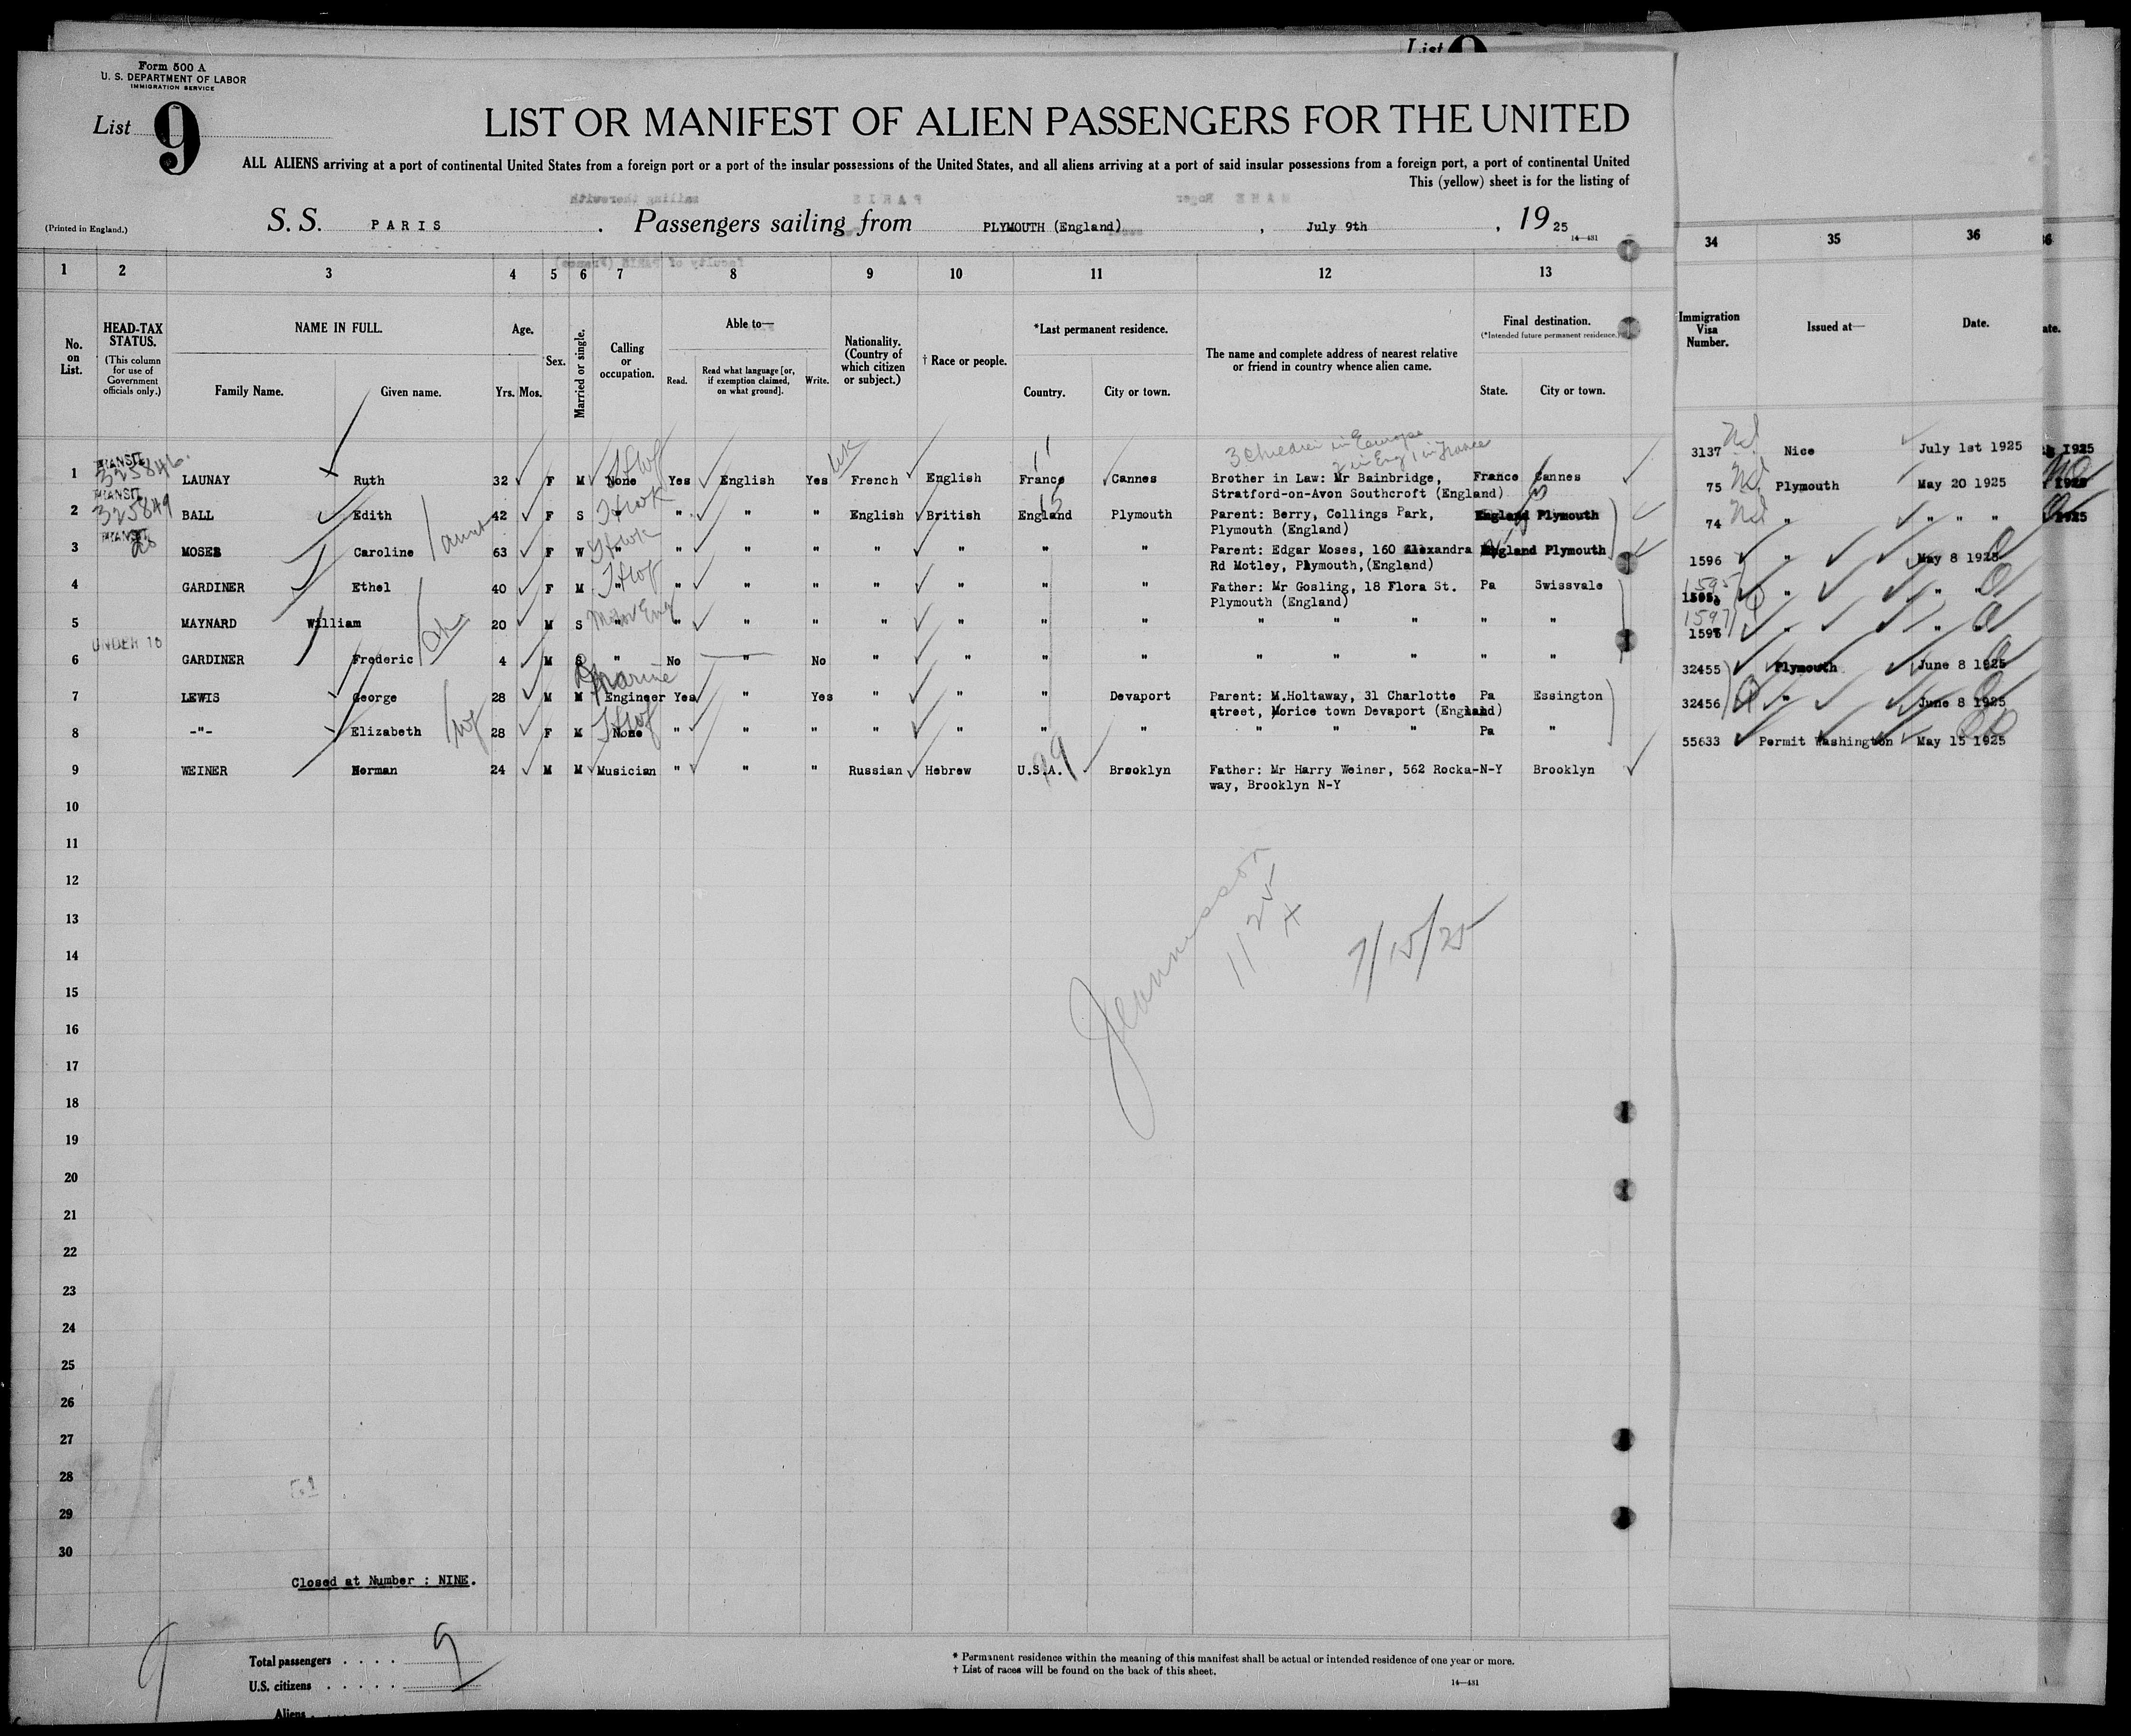 List 9
Form 500 A
U. S. DEPARTMENT OF LABOR
IMMIGRATION SERVICE
List 9
LIST OR MANIFEST OF ALIEN PASSENGERS FOR THE UNITED
ALL ALIENS arriving at a port of continental United States from a foreign port or a port of the insular possessions of the United States, and all aliens arriving at a port of said insular possessions from a foreign port, a port of continental United
This (yellow) sheet is for the listing of
(Printed in England.) S. S. PARIS . Passengers sailing from PLYMOUTH (England) , July 9th , 19 25
14—481
1 2 3 4 5 6 7 8 9 10 11 12 13 34 35 36
No. on List.
HEAD-TAX STATUS.
(This column for use of Government officials only.)
NAME IN FULL.
Family Name. Given name.
Age.
Yrs. Mos.
Sex.
Married or single.
Calling or occupation.
Able to—
Read. Read what language [or, if exemption claimed, on what ground]. Write.
Nationality. (Country of which citizen or subject.)
† Race or people.
*Last permanent residence.
Country. City or town.
The name and complete address of nearest relative or friend in country whence alien came.
Final destination.
(*Intended future permanent residence.)
State. City or town.
Immigration Visa Number.
Issued at—
Date.
3 children in Europe
2 in Eng 1 in France
1 TRANSIT 325846 LAUNAY Ruth 32 F M None Yes English Yes French English France Cannes Brother in Law: Mr Bainbridge, France Cannes 3137 Nice July 1st 1925
Stratford-on-Avon Southcroft (England)
2 TRANSIT 325849 BALL Edith 42 F S " " " " English British England Plymouth Parent: Berry, Collings Park, England Plymouth 75 Plymouth May 20 1925
Plymouth (England)
3 TRANSIT do MOSES Caroline aunt 63 F W " " " " " " " " Parent: Edgar Moses, 160 Alexandra England Plymouth 74 " " " "
Rd Motley, Plymouth,(England)
4 GARDINER Ethel 40 F M " " " " " " " " Father: Mr Gosling, 18 Flora St. Pa Swissvale 1596 " May 8 1925
Plymouth (England)
5 MAYNARD William 20 M S " " " " " " " " " " " " " 1595 " " "
6 UNDER 16 GARDINER Frederic 4 M S " No " No " " " " " " " " " 1597 " " "
7 LEWIS George 28 M M Marine Engineer Yes " Yes " " " Devaport Parent: M.Holtaway, 31 Charlotte Pa Essington 32455 Plymouth June 8 1925
street, Morice town Devaport (England)
8 -"- Elizabeth wf 28 F M None " " " " " " " " " " Pa " 32456 " June 8 1925
9 WEINER Norman 24 M M Musician " " " Russian Hebrew U.S.A. Brooklyn Father: Mr Harry Weiner, 562 Rocka- N-Y Brooklyn 55633 Permit Washington May 15 1925
way, Brooklyn N-Y
10
11
12
13
7/15/25
14
15
16
17
18
19
20
21
22
23
24
25
26
27
28
29
30
Closed at Number : NINE.
9
Total passengers . . . . 9
U.S. citizens . . . . .
Aliens .
* Permanent residence within the meaning of this manifest shall be actual or intended residence of one year or more.
† List of races will be found on the back of this sheet.
14—481